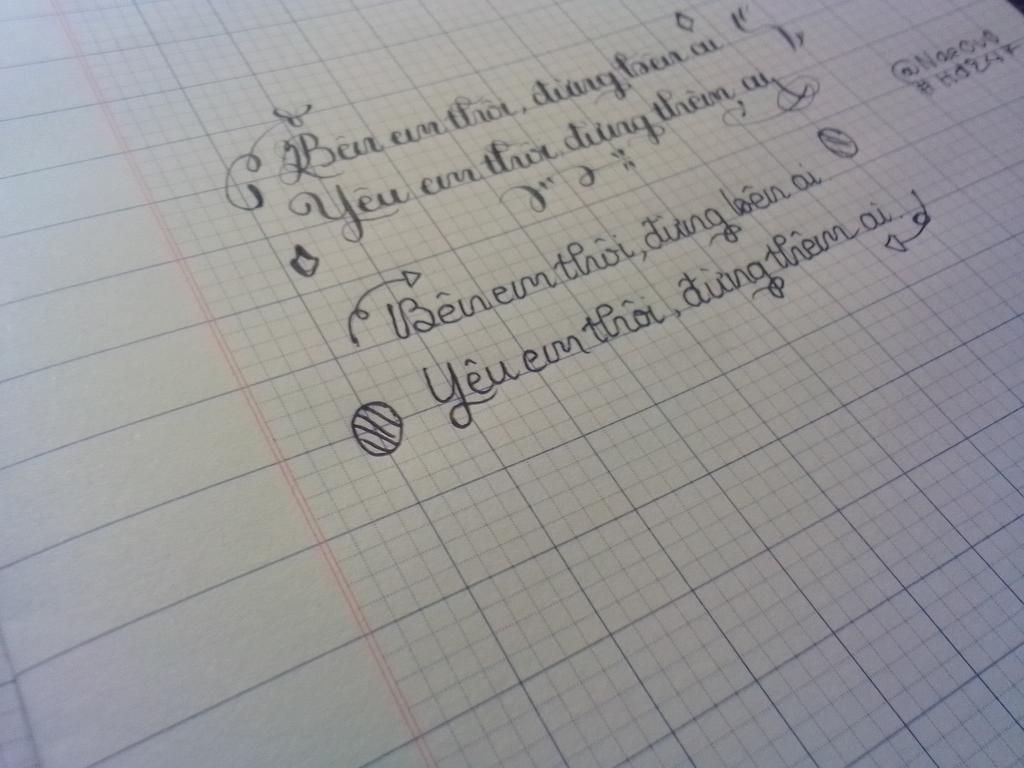 Bên em thôi, đừng bên ai
Yêu em thôi đừng thêm ai
Bên em thôi, đừng bên ai
Yêu em thôi, đừng thêm ai